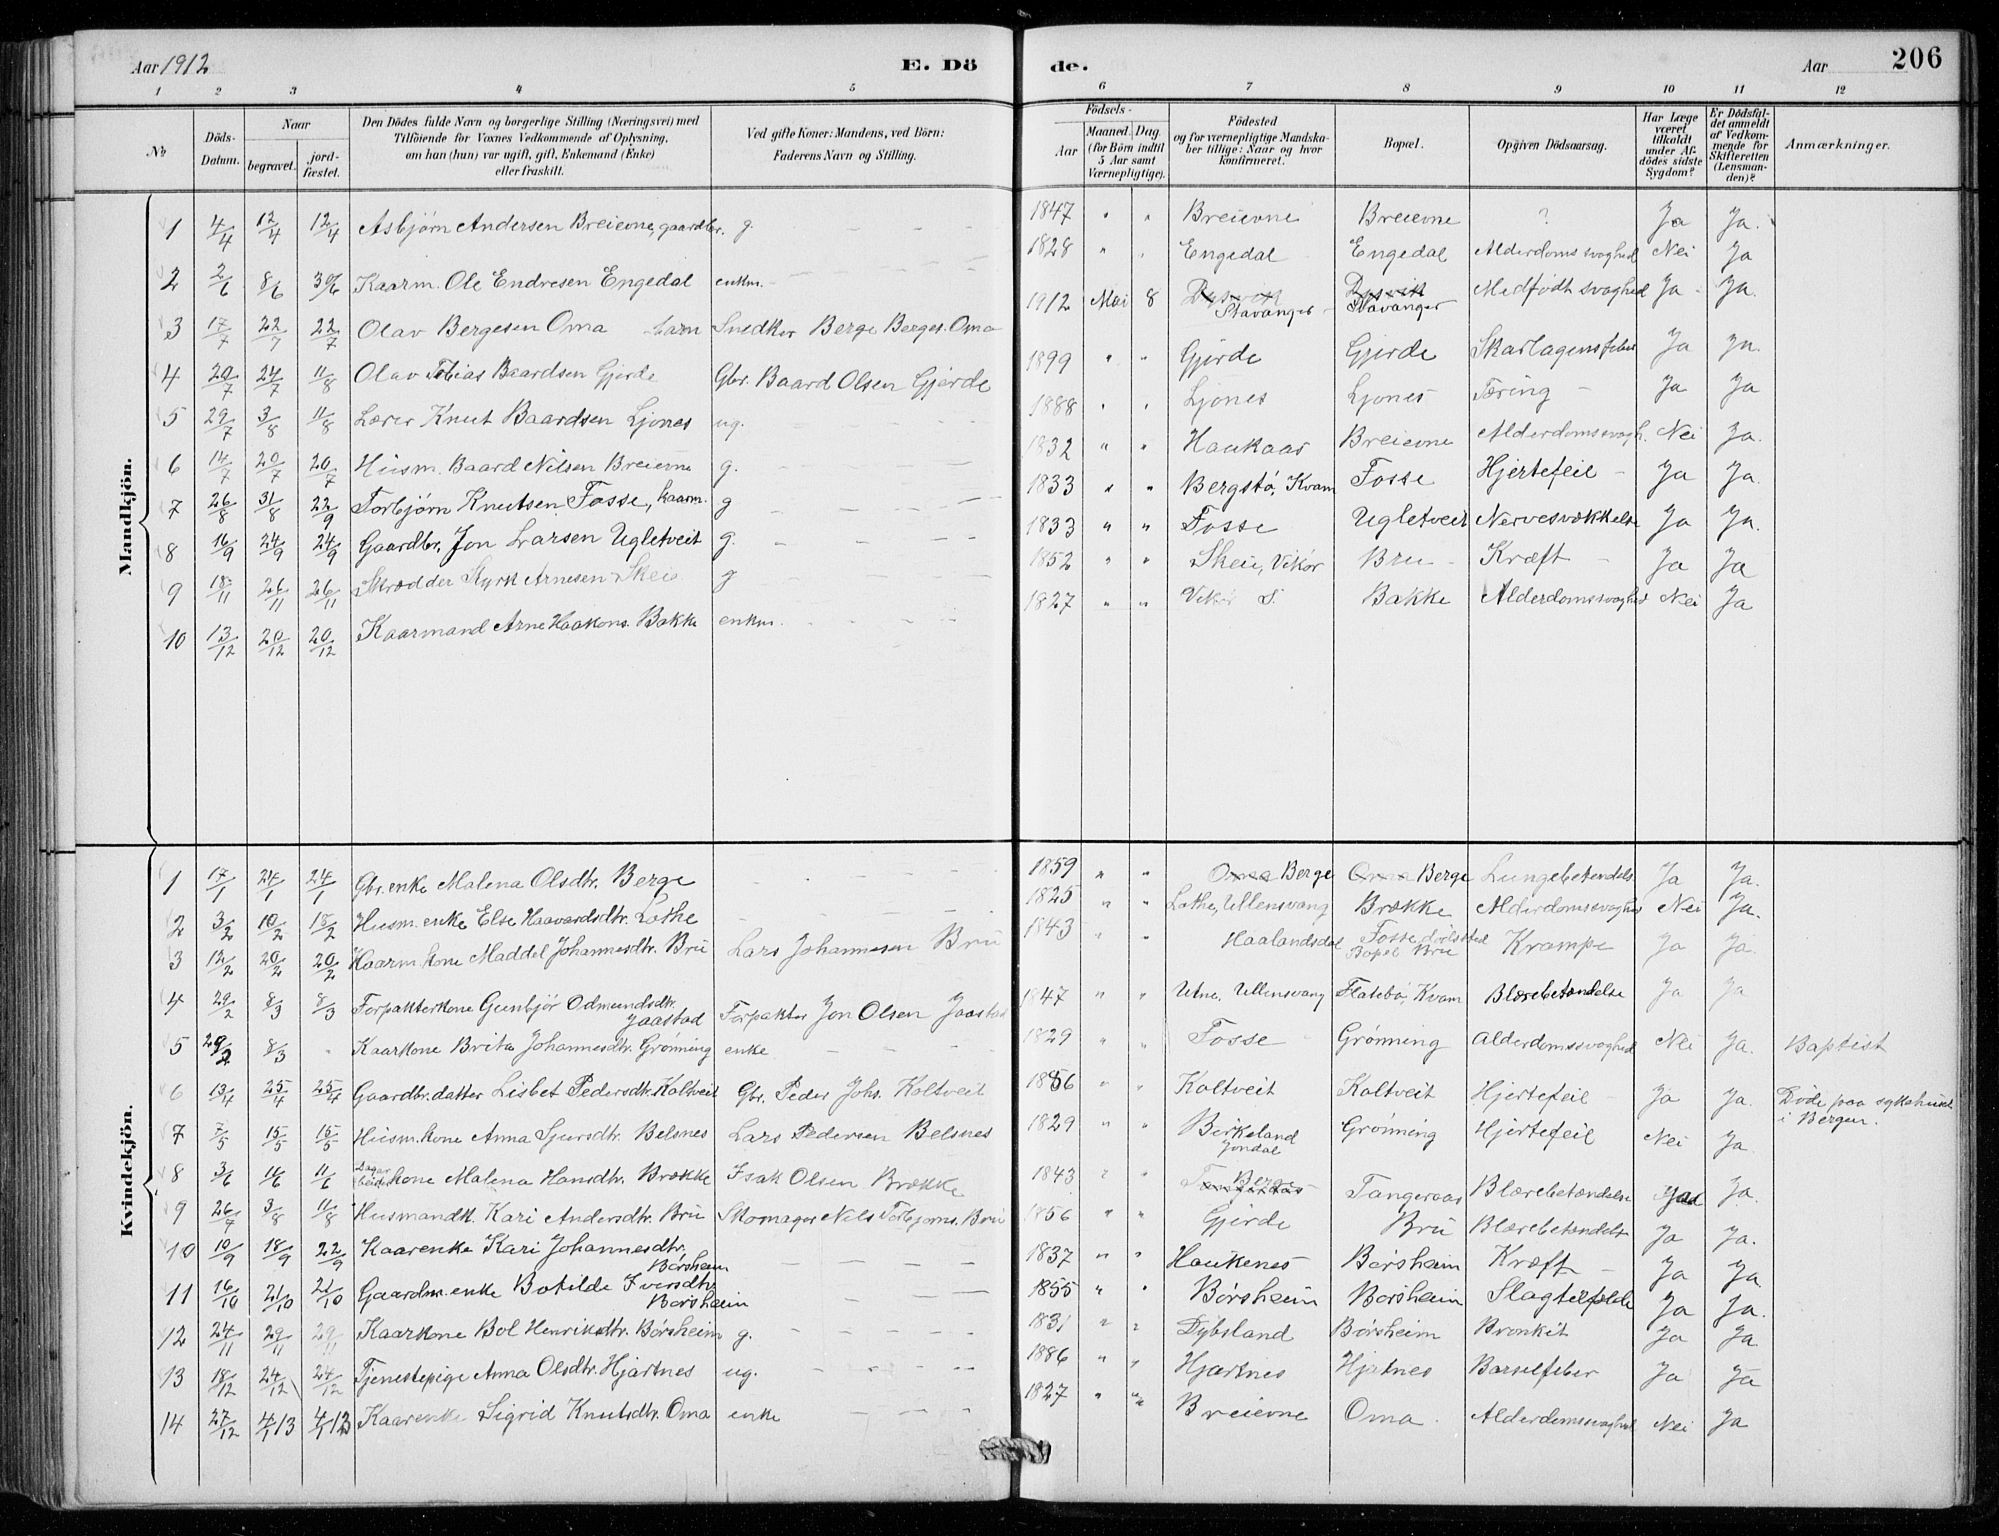 Aar 1912
E. Dö
de.
Aar
206
1 2 3 4 5 6 7 8 9 10 11 12
No
Döds-Datum.
Naar
begravet.
jord-fæstet.
Den Dödes fulde Navn og borgerlige Stilling (Næringsvei) med
Tilföiende for Voxnes Vedkommende af Oplysning,
om han (hun) var ugift, gift, Enkemand (Enke)
eller fraskilt.
Ved gifte Koner: Mandens, ved Börn:
Faderens Navn og Stilling.
Födsels-
Aar
Maaned. Dag
(for Börn indtil
5 Aar samt
Værnepligtige).
Födested
og for værnepligtige Mandska-
ber tillige: Naar og hvor
konfirmeret.
Bopæl.
Opgiven Dödsaarsag.
Har Læge
været
tilkaldt
under Af-
dödes sidste
Sygdom?
Er Dödsfal-
det anmeldt
af Vedkom-
mende for
Skifteretten
(Lensman-
den)?
Anmærkninger.
Mandkjön.
1 4/4 12/4 12/4 Asbjørn Andersen Breievne, gaardbr. g. 1847 " " Breievne Breievne ? Ja Ja.
2 2/6 8/6 30/6 Kaarm. Ole Endresen Engedal enkm. 1828 " " Engedal Engedal Alderdomssvaghed Nei Ja
3 17/7 22/7 22/7 Olav Bergesen Oma barn Snedker Berge Berges. Oma 1912 Mai 8 Dysvik Stavanger Dysvik Stavanger Medfødt svaghed Ja Ja.
4 20/7 24/7 11/8 Olav Tobias Baardsen Gjerde Gbr. Baard Olsen Gjerde 1899 " " Gjerde Gjerde Skarlagensfeber Ja Ja.
5 29/7 3/8 11/8 Lærer Knut Baardsen Ljones ug. 1888 " " Ljones Ljones Tæring Ja Ja
6 14/7 20/7 20/7 Husm. Baard Nilsen Breievne g. 1832 " " Haukaas Breievne Alderdomssvagh. Nei Ja.
7 26/8 31/8 22/9 Torbjørn Knutsen Fosse, kaarm. g 1833 " " Bergstø, Kvam Fosse Hjertefeil Ja Ja.
8 16/9 24/9 24/9 Gaardbr. Jon Larsen Ugletveit g. 1833 " " Fosse Ugletveit Nervesvækkelse Ja Ja.
9 18/11 26/11 26/11 Skrædder Styrk Arnesen Skeie g 1852 " " Skeie, Vikør Bru Kræft Ja Ja
10 13/12 20/12 20/12 Kaarmand Arne Haakons. Bakke enkm. 1827 " " Vikør S. Bakke Alderdomssvaghed Nei Ja
Kvindekjön.
1 17/1 24/1 24/1 Gbr. enke Malena Olsdtr. Berge 1859 " " Oma Berge Oma Berge Lungebetændels. Ja Ja.
2 3/2 10/2 18/2 Husm. enke Else Haavardsdtr. Lothe 1825 " " Lothe, Ullensvang Brække Alderdomssvaghed Nei Ja.
3 12/2 20/2 20/2 Kaarm. kone Maddel Johannesdtr. Bru Lars Johannesen Bru 1843 " " Haalandsdal Fosse dødssted Bopel Bru Krampe Ja Ja.
4 29/2 8/3 8/3 Forpakterkone Gunbjør Odmundsdtr. Jaastad Forpakter Jon Olsen Jaastad 1847 " " Utne, Ullensvang Flatebø, Kvam Blærebetændelse Ja Ja
5 29/2 8/3 Kaarkone Brita Johannesdtr. Grønning enke 1829 " " Fosse Grønning Alderdomssvaghed Nei Ja. Baptist
6 13/4 25/4 25/4 Gaardbr. datter Lisbet Pedersdtr. Koltveit Gbr. Peder Johs. Koltveit 1886 " " Koltveit Koltveit Hjertefeil Ja Ja. Døde paa sykehuset i Bergen.
7 7/5 15/5 15/5 Husm. kone Anna Sjursdtr. Belsnes Lars Pedersen Belsnes 1829 " " Birkeland Jondal Grønning Hjertefeil Nei Ja.
8 3/6 11/6 11/6 Dagarbeider kone Malena Hansdtr. Brække Isak Olsen Brække 1843 " " Tangeraas Berge Tangeraas Blærebetændelse Ja Ja.
9 26/7 3/8 11/8 Husmandk. Kari Andersdtr. Bru Skomager Nils Torbjørns. Bru 1856 " " Gjerde Bru Blærebetændelse Ja Ja.
10 10/9 18/9 22/9 Kaarenke Kari Johannesdtr. Børsheim 1837 " " Haukenes Børsheim Kræft Ja Ja
11 16/10 21/10 21/10 Gaardm. enke Botilde Iversdtr. Børsheim 1855 " " Børsheim Børsheim Slagtilfælde Ja Ja.
12 24/11 29/11 29/11 Kaarkone Bol Henriksdtr. Børsheim g. 1831 " " Dybsland Børsheim Bronkit Ja Ja
13 18/12 24/12 24/12 Tjenestepige Anna Olsdtr. Hjartnes ug. 1886 " " Hjartnes Hjrtnes Barselfeber Ja Ja
14 27/12 4/1 13 4/1 13 Kaarenke Sigrid Knutsdtr. Oma enke 1827 " " Breievne Oma Alderdomssvaghed Nei Ja